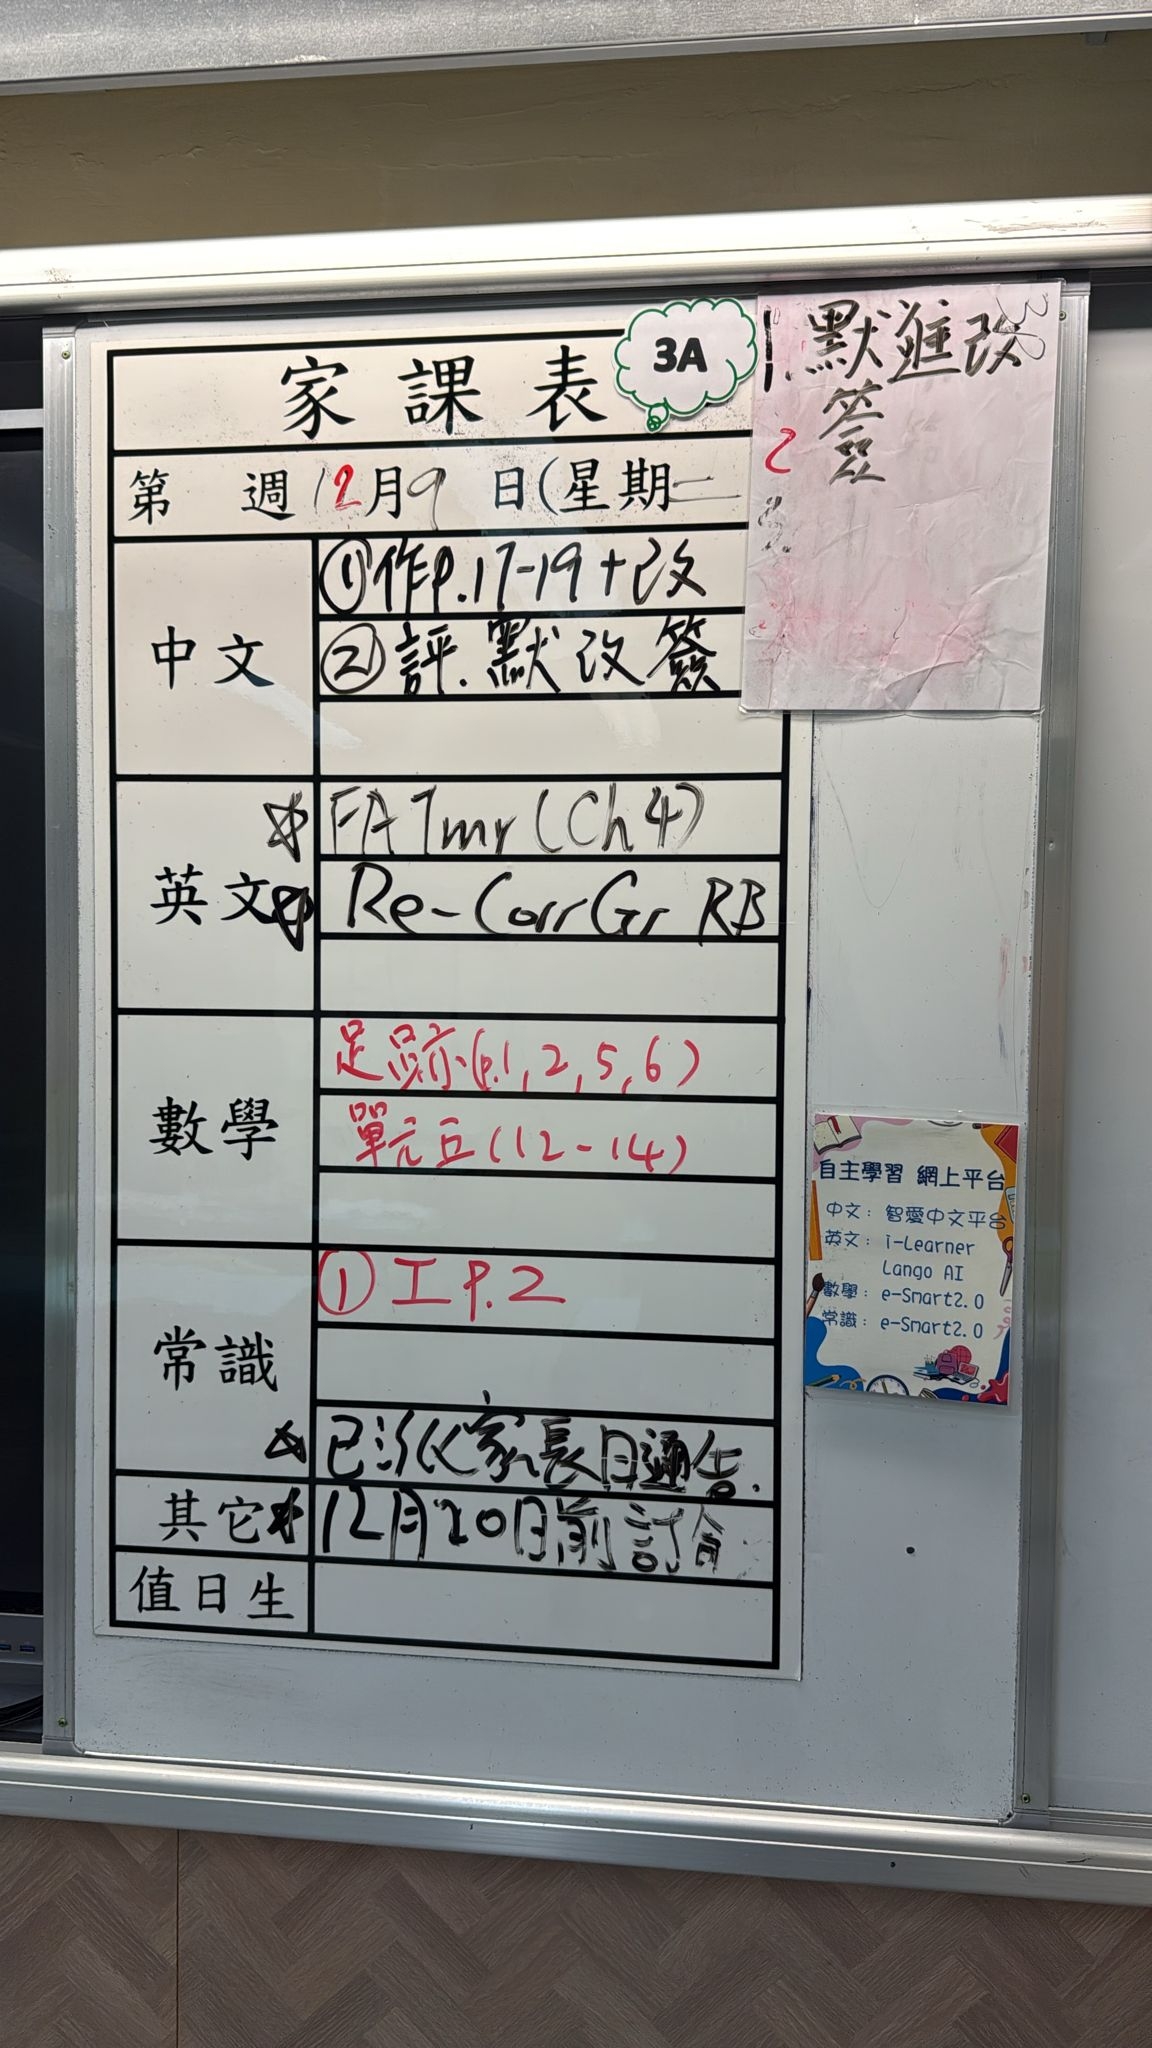 家課表
3A
第 週 12月9 日(星期二
中文
①作P.17-19+改
②評.默改簽
英文
FA Tmr (Ch 4)
Re-Corr Gr RB
數學
足跡(p.1,2,5,6)
單元(12-14)
常識
① 工 P.2
已派家長日通告.
其它
12月20日前
值日生
1. 默進改
簽
2
自主學習 網上平台
中文: 智愛中文平台
英文: i-Learner
Lango AI
數學: e-Smart2.0
常識: e-Smart2.0